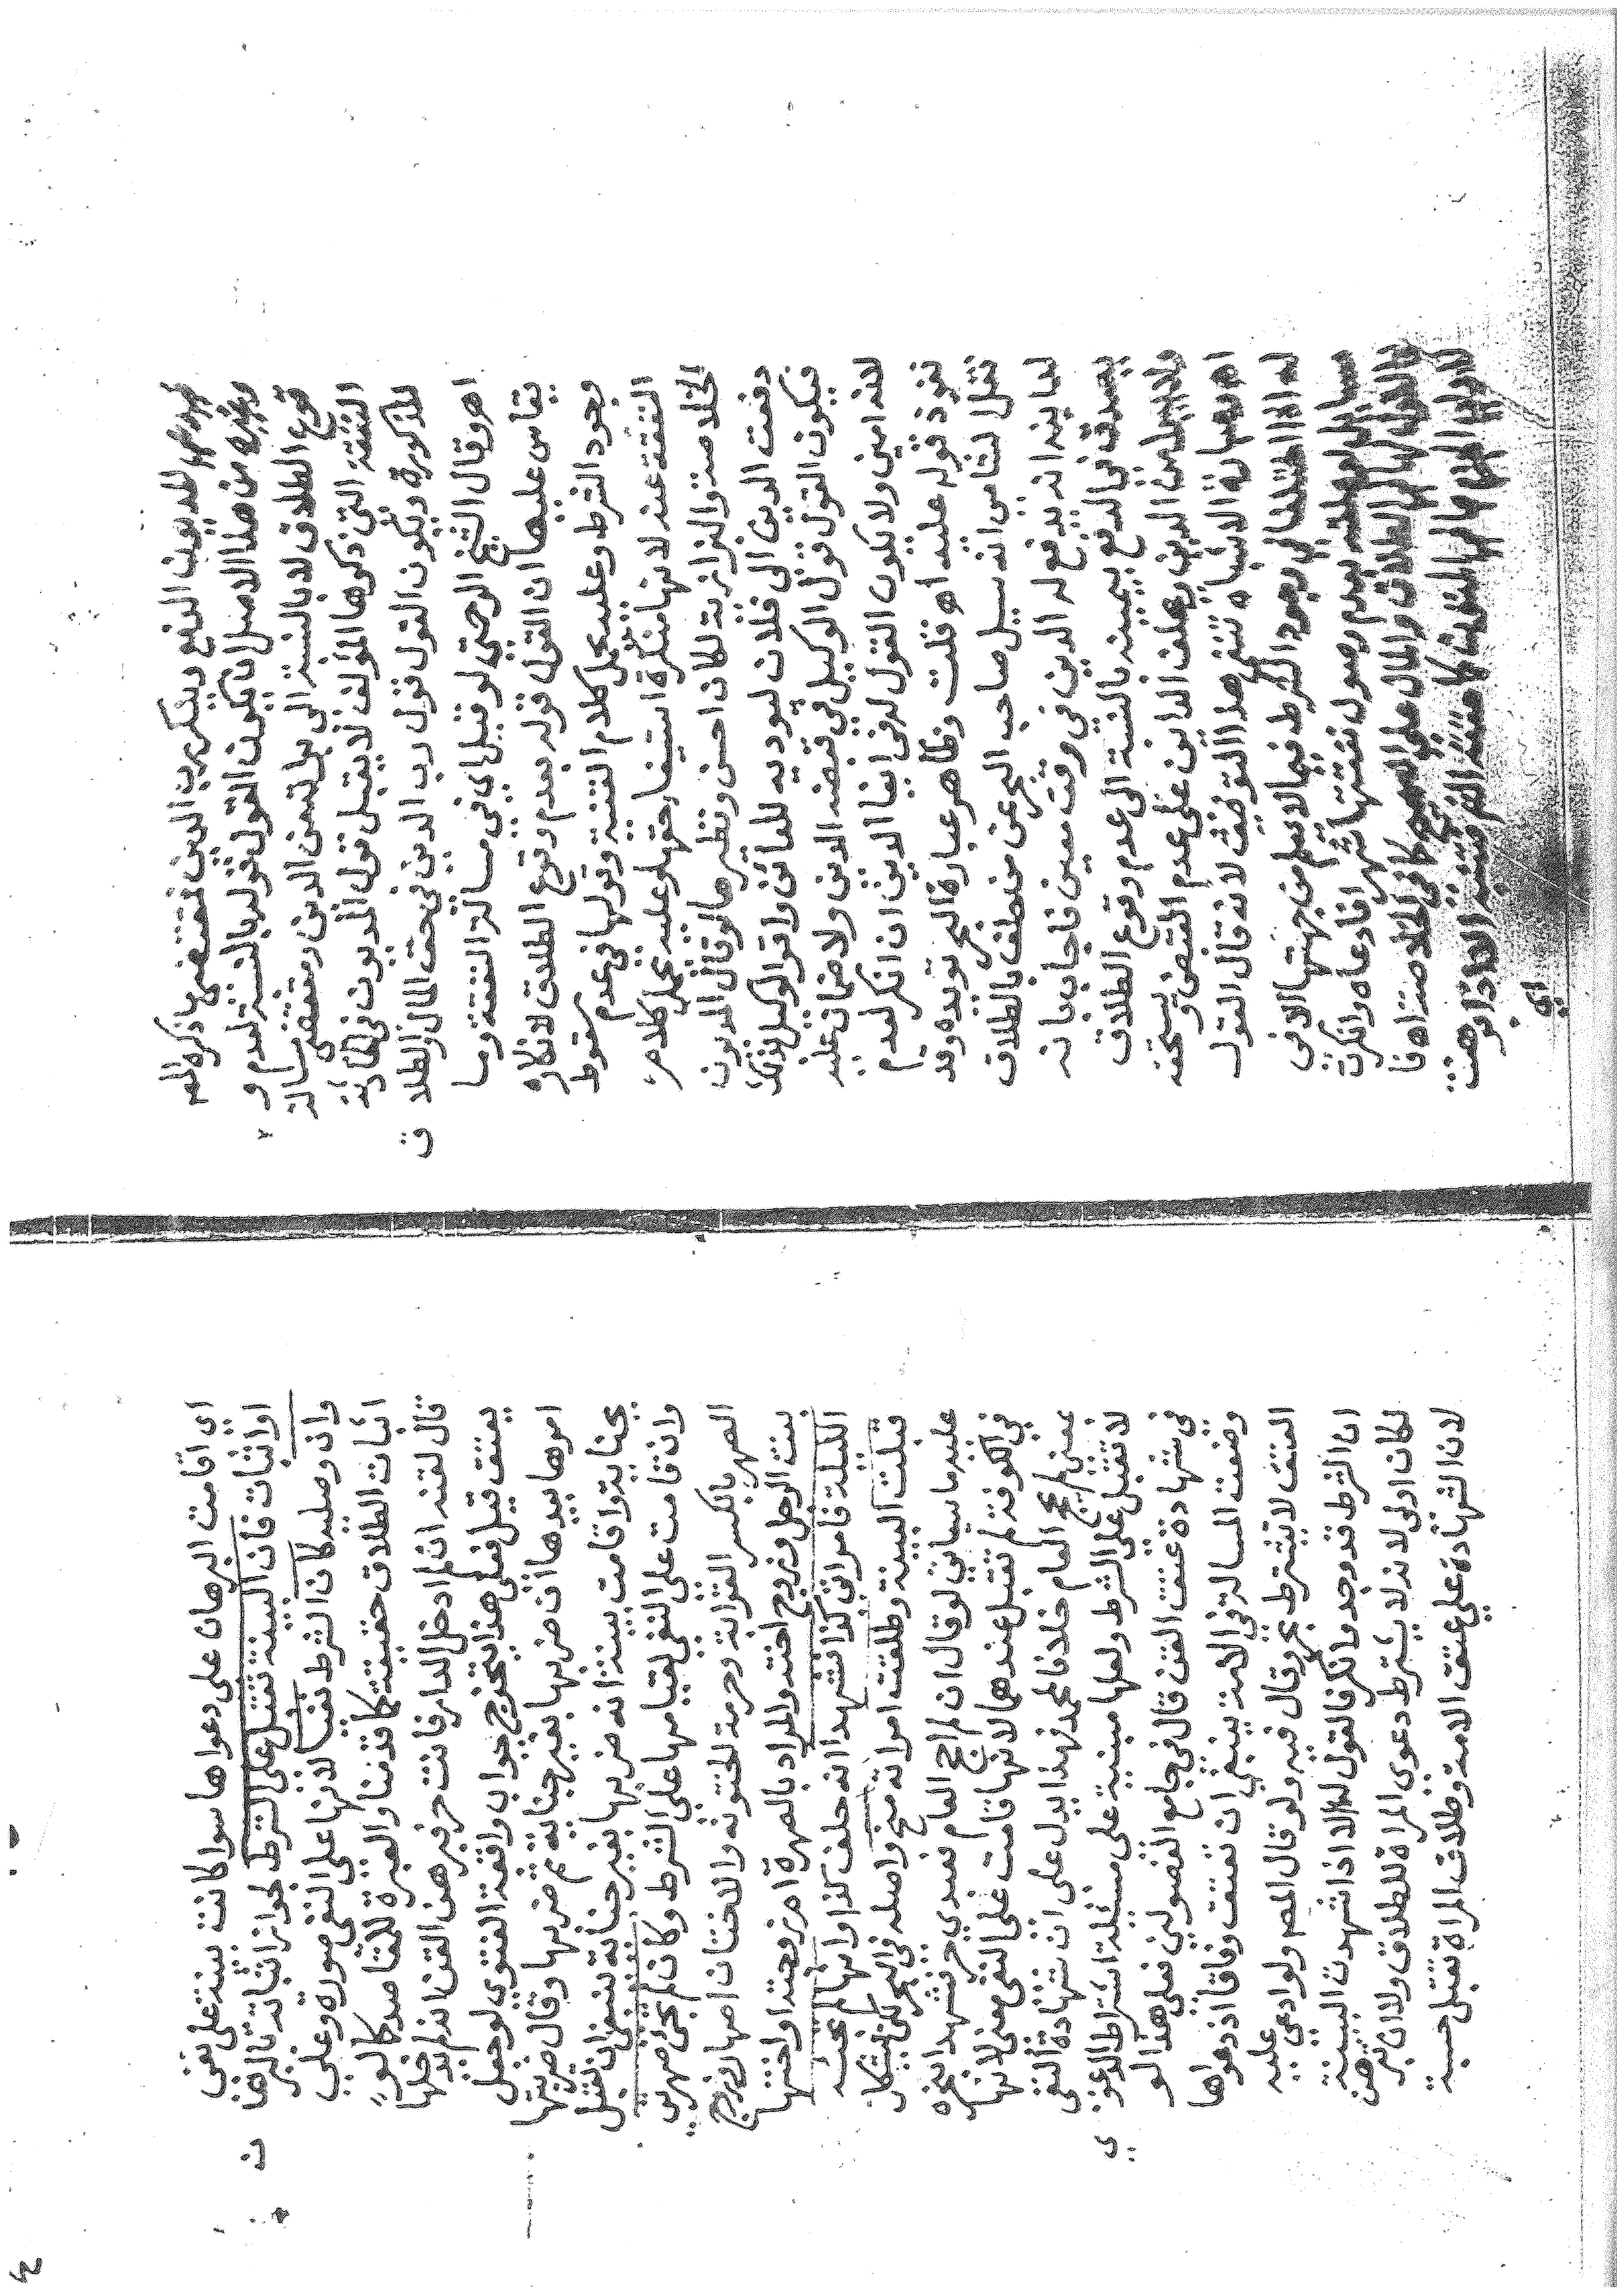 المديون الدفع وينكر رب الدين فمقتضى ما ذكره المصـ
وغيره من هذا الاصل ان يكون القول قوله بالنسبة لعدم و
قوع الطلاق لا بالنسبة الى براته من الدين ومقتضى مسالة
النفقة التى ذكرها المؤلف لا يقبل قول المديون فى الحادثة
المذكورة ويكون القول قول رب الدين فى حق المال والطلا ق
اهـ وقال الشيخ الرحمتى لو قيل اى فى مسالة النفقة وما
يقاس عليها ان القول قوله بعدم وقوع الطلاق لانكاره
وجود الشرط وعليه يحمل كلام القنية وقولها فى عدم سقوط
النفقة عنه لانها منكرة استيفا حقها وعليه يحمل كلام
الخلاصة والبزازية لكان احسن ونظيرها لو قال المديون
دفعت الدين الى فلان ليوديه للدائن واقر الوكيل بذلك
فيكون القول قول الوكيل فى قبضه الدين ولا ضمان عليه
لانه امين ولا يكون القول له فى ايفا الدين ان انكر لعدم
نفوذ قوله عليه اهـ قلت وظاهر عبارة البحر تويده وقد
نقل الشامى انه سيل صاحب البحر عن من حلف بالطلاق
لدائنه انه يدفع له الدين فى وقت معين فاجاب بانه
يصدق فى الدفع بيمينه بالنسبة الى عدم وقوع الطلاق
ولا يبرا من الدين ويحلف الداين على عدم القبض ويستحقه
اهـ وعبارة الاشباه تنفى هذا التوفيق لانه قال القول
له اذا اختلفا فى وجود الشرط فيما لا يعلم من جهتها الا فى
مسايل لو علقه بعدم وصول نفقتها شهرا فادعاه وانكرت
فالقول لها فى الطلاق والمال على الصحيح كما فى الخلاصة اهـ فا
اى
اى اقامت البرهان على دعواها سوا كانت بينة على نفى
او اثبات فان البينة تقبل على الشرط لجواز اثباته بالبرها ن
وان وصلية كان الشرط نفيا لانها على النفى صورة وعلى
اثبات الطلاق حقيقة كما قدمنا والعبرة للمقاصد كما لو
قال لقنه ان لم ادخل الدار فانت حر فبرهن القن انه لم يدخلها
يعتق قيل فعلى هذا يتخرج جواب واقعة الفتوى لو جعل
امرها بيدها ان ضربها بغير جناية ثم ضربها وقال ضربتها
بجناية واقامت بينة انه ضربها بغير جناية تنبغى ان تقبل
وان قامت على النفى لقيامها على الشرط وكان لم تجئ صهرتى
الصهر بالكسر القرابة وحرمة الختونة والاختان اصهار وزوج
بنت الرجل وزوج اخته والمراد بالصهرة ام زوجته او اختها
الليلة فامراتى كذا فشهدا انه حلف كذا وانها لم تجئه
قبلت البينة وطلقت امراته منح واصله فى البحر لكن يشكل
عليه ما سياتى لو قال ان لم احج العام فعبدى حر فشهدا بنحره
فى الكوفة لم تقبل عندهما لانها قامت على النفى معنى لانها
بمعنى لم يحج العام خلافا لمحمد فهذا يدل على ان شهادة النفى
لا تقبل على الشرط ولعلها مبنية على مسئلة اشتراط الدعو ى
فى شهادة عتق القن قال فى جامع الفصولين فعلى هذا لو
وضعت المسالة فى الامة ينبغى ان تعتق وفاقا اذ دعواها
العتق لا تشترط بحر وقال فيه ولو قال المص ولو ادعى عليه
ان الشرط قد وجد وانكر فالقول له الا اذا شهدت البينة
لكان اولى لانه لا يشترط دعوى المراة للطلاق ولا ان تبرهن
لان الشهادة على عتق الامة وطلاق المراة تقبل حسبة